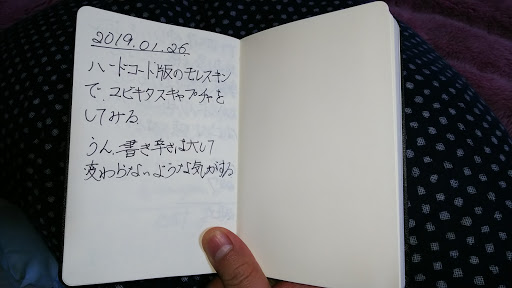 2019.01.26.
ハードコード版のモレスキン
で、ユビキタスキャプチャを
してみる.
うん、書き辛さは大して
変わらないような気がする